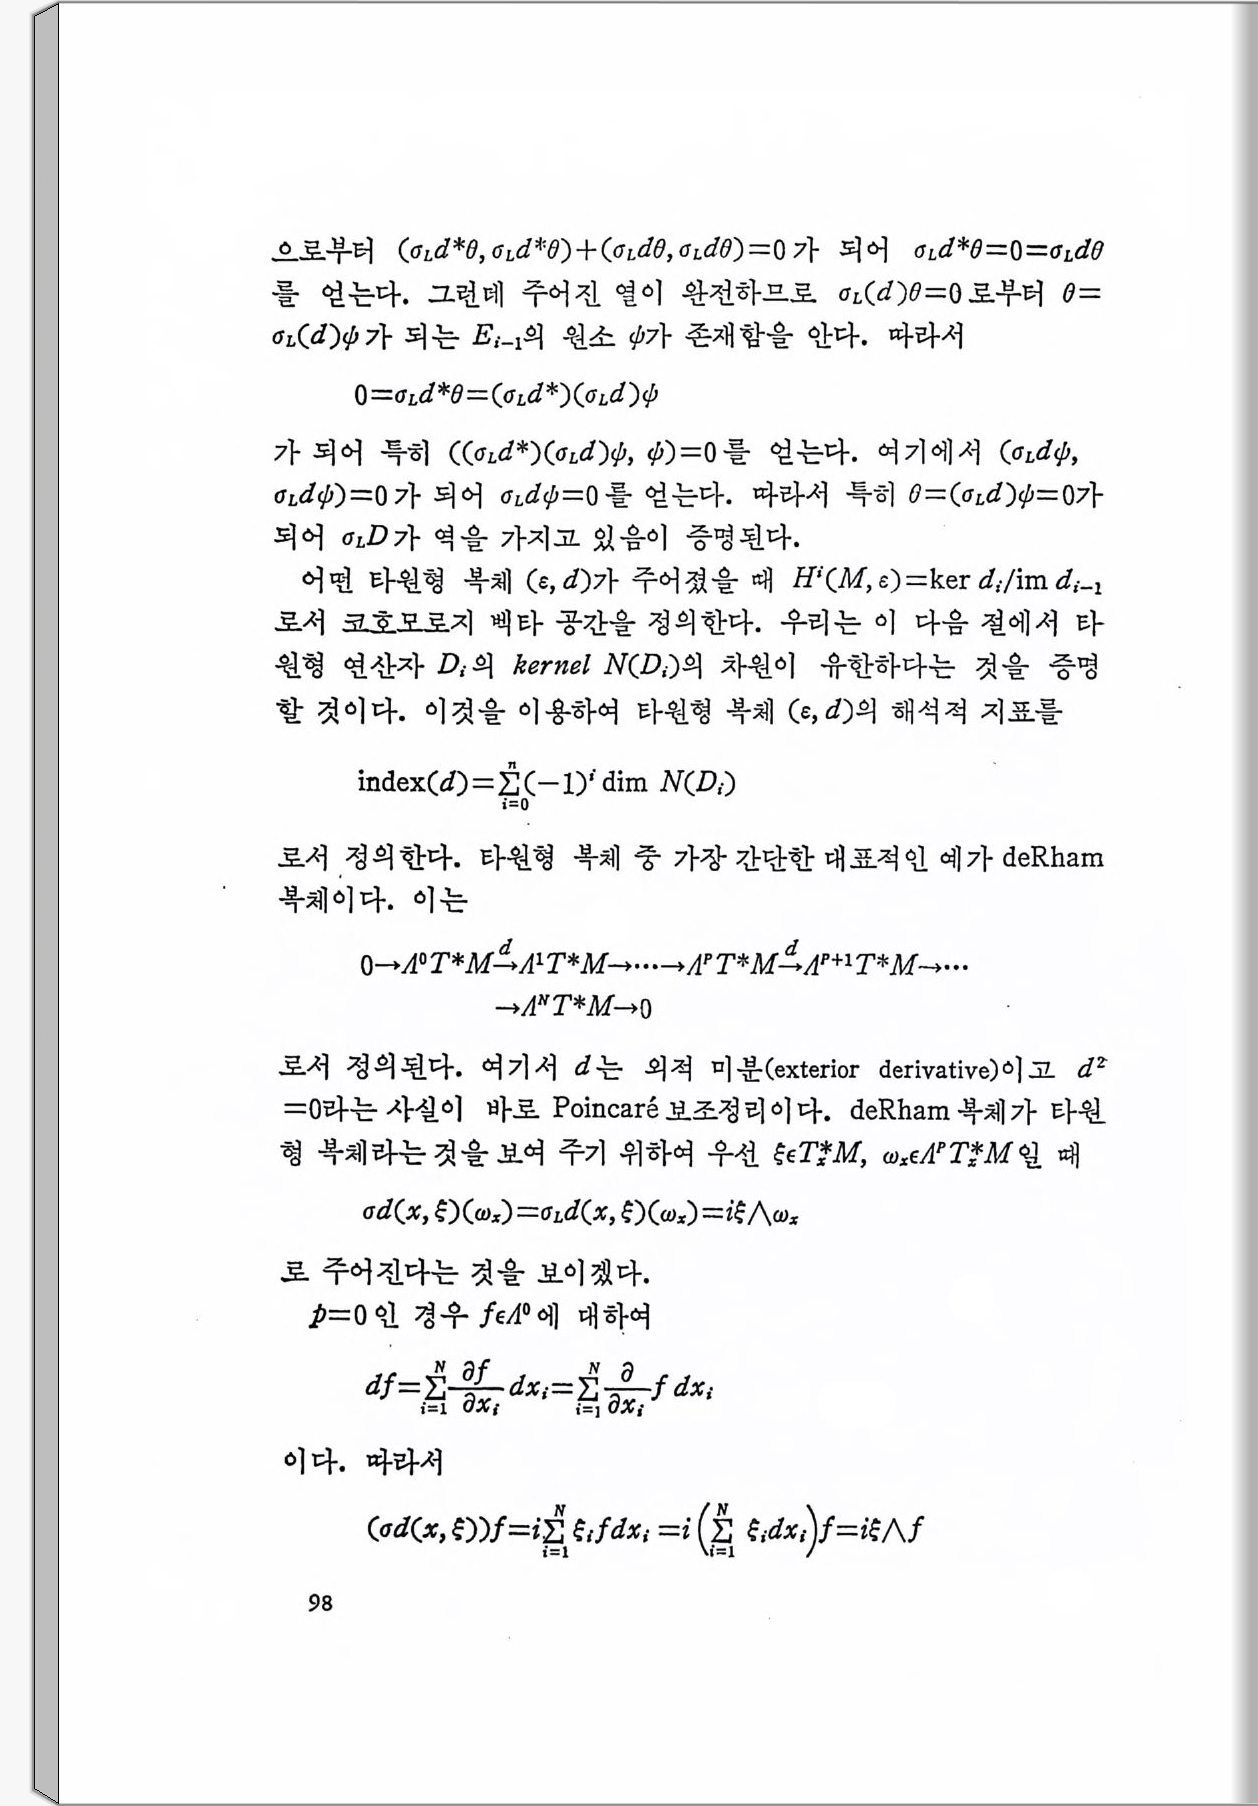 으로부터 (σ_Ld*θ, σ_Ld*θ)+(σ_Ldθ, σ_Ldθ)=0가 되어 σ_Ld*θ=0=σ_Ldθ
를 얻는다. 그런데 주어진 열이 완전하므로 σ_L(d)θ=0로부터 θ=
σ_L(d)ψ가 되는 E_{i-1}의 원소 ψ가 존재함을 안다. 따라서
0=σ_Ld*θ=(σ_Ld*)(σ_Ld)ψ
가 되어 특히 ((σ_Ld*)(σ_Ld)ψ, ψ)=0를 얻는다. 여기에서 (σ_Ldψ,
σ_Ldψ)=0가 되어 σ_Ldψ=0를 얻는다. 따라서 특히 θ=(σ_Ld)ψ=0가
되어 σ_LD가 역을 가지고 있음이 증명된다.
어떤 타원형 복체 (ε, d)가 주어졌을 때 H^i(M, ε)=ker d_i/im d_{i-1}
로서 코호모로지 벡타 공간을 정의한다. 우리는 이 다음 절에서 타
원형 연산자 D_i의 kernel N(D_i)의 차원이 유한하다는 것을 증명
할 것이다. 이것을 이용하여 타원형 복체 (ε, d)의 해석적 지표를
index(d)=∑_{i=0}^{n}(-1)^i dim N(D_i)
로서 정의한다. 타원형 복체 중 가장 간단한 대표적인 예가 deRham
복체이다. 이는
0→Λ^0T*M→^dΛ^1T*M→⋯→Λ^pT*M→^dΛ^{p+1}T*M→⋯
→Λ^NT*M→0
로서 정의된다. 여기서 d는 외적 미분(exterior derivative)이고 d^2
=0라는 사실이 바로 Poincaré 보조정리이다. deRham 복체가 타원
형 복체라는 것을 보여 주기 위하여 우선 ξϵT_x*M, ω_xϵΛ^pT_x*M일 때
σd(x, ξ)(ω_x)=σ_Ld(x, ξ)(ω_x)=iξ∧ω_x
로 주어진다는 것을 보이겠다.
p=0인 경우 fϵΛ^0에 대하여
df=∑_{i=1}^{N} ∂f/∂x_i dx_i=∑_{i=1}^{N} ∂/∂x_i f dx_i
이다. 따라서
(σd(x, ξ))f=i∑_{i=1}^{N} ξ_ifdx_i=i(∑_{i=1}^{N} ξ_idx_i)f=iξ∧f
98